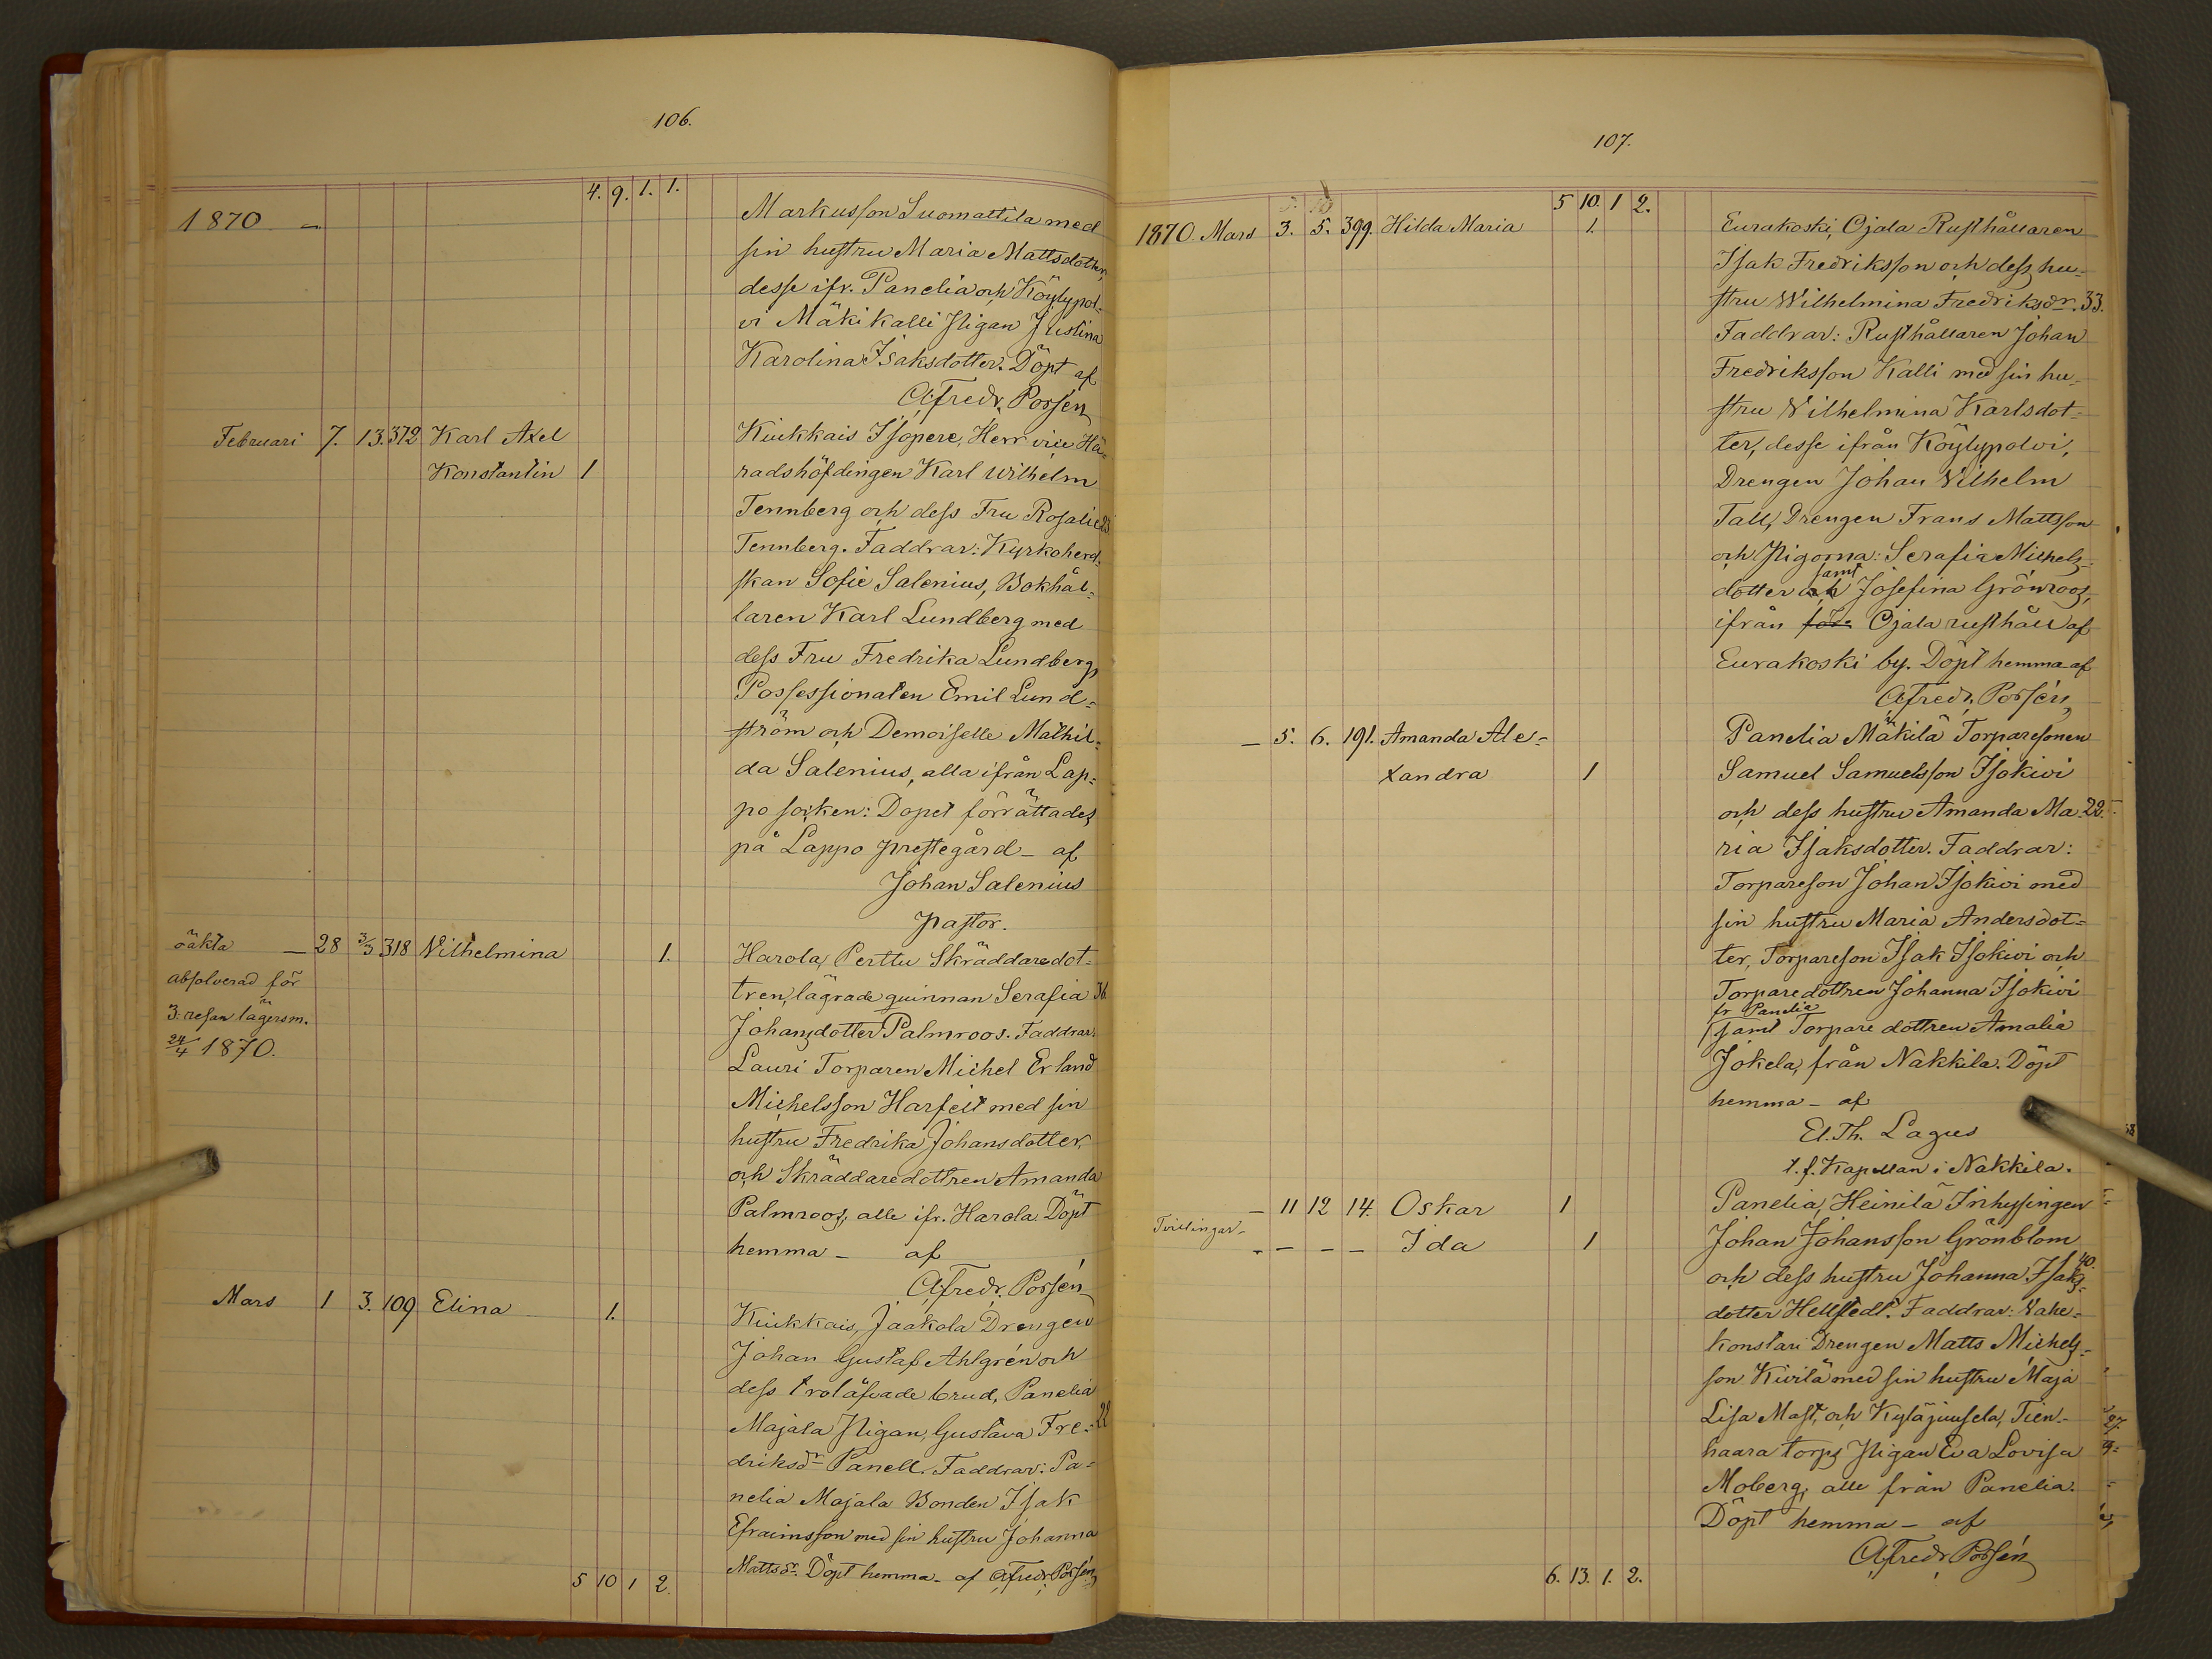 106.
4. 9. 1. 1.
1870 — Markusson Suomattila med
sin hustru Maria Mattsdotter,
desse ifr. Panelia och Köylypol-
vi Mäki Kalli Pigan Justina
Karolina Isaksdotter. Döpt af
A. Fredr. Porsén
Februari 7. 13. 372 Karl Axel Kiukkais Isopere, Herr vice Hä-
Konstantin 1 radshöfdingen Karl Wilhelm
Tennberg och dess Fru Rosalie
Tennberg. Faddrar: Kyrkoherd-
skan Sofie Salenius, Bokhål-
laren Karl Lundberg med
dess Fru Fredrika Lundberg,
Possessionaten Emil Lund-
ström och Demoiselle Mathil-
da Salenius, alla ifrån Lap-
po socken: Dopet förrättades
på Lappo prestegård — af
Johan Salenius
pastor.
oäkta — 28 3/3 318 Vilhelmina 1. Harola, Perttu Skräddaredot-
absolverad för tren, lägrade quinnan Serafia 36
3. resan lägersm. Johansdotter Palmroos. Faddrar:
24/4 1870. Lauri Torparen Michel Erland
Michelsson Harfelt med sin
hustru Fredrika Johansdotter,
och Skräddaredottren Amanda
Palmroos, alle ifr. Harola Döpt
hemma — af
A. Fredr. Porsén
Mars 1 3. 109 Elina 1. Kiukkais, Jaakola Drengen
Johan Gustaf Ahlgrén och
dess trolåfvade brud, Panelia
Majala Pigan, Gustava Fre- 22
driksdr Panell. Faddrar: Pa-
nelia Majala Bonden Isak
Efraimsson med sin hustru Johanna
Mattsdr. Döpt hemma — af A. Fredr. Porsén
5 10 1 2.
107.
5 10. 1 2.
1870. Mars 3. 5. 399. Hilda Maria 1. Eurakoski, Ojala Rusthållaren
Isak Fredriksson och dess hu-
stru Wilhelmina Fredriksdr. 33.
Faddrar: Rusthållaren Johan
Fredriksson Kalli med sin hu-
stru Vilhelmina Karlsdot-
ter, desse ifrån Köylypolvi,
Drengen Johan Vilhelm
Tall, Drengen Frans Mattsson
och Pigorna: Serafia Michels-
samt
dotter och Josefina Grönroos,
ifrån Ojala rusthåll af
Eurakoski by. Döpt hemma af
A. Fredr. Porsén
— 5. 6. 191. Amanda Ale- Panelia Mäkilä Torparesonen
xandra 1 Samuel Samuelsson Isokivi
och dess hustru Amanda Ma- 22.
ria Isaksdotter. Faddrar:
Torpareson Johan Isokivi med
sin hustru Maria Andersdot-
ter, Torpareson Isak Isokivi och
Torparedottren Johanna Isokivi
fr Panelia
samt Torpare dottren Amalia
Jokela, från Nakkila. Döpt
hemma — af
El. Th. Lagus
t. f. Kapellan i Nakkila.
— 11 12 14. Oskar 1 Panelia, Heinilä Inhysingen
Tvillingar — — — — Ida 1 Johan Johansson Grönblom
och dess hustru Johanna Isaks- 40.
dotter Hellstedt. Faddrar: Vahe-
konstari Drengen Matts Michels-
son Kivilä med sin hustru Maja
Lisa Mast, och Kyläjuusela, Tien-
haara torps Pigan Eva Lovisa
Moberg, alle från Panelia.
Döpt hemma — af
A. Fredr. Porsén
6. 13. 1. 2.